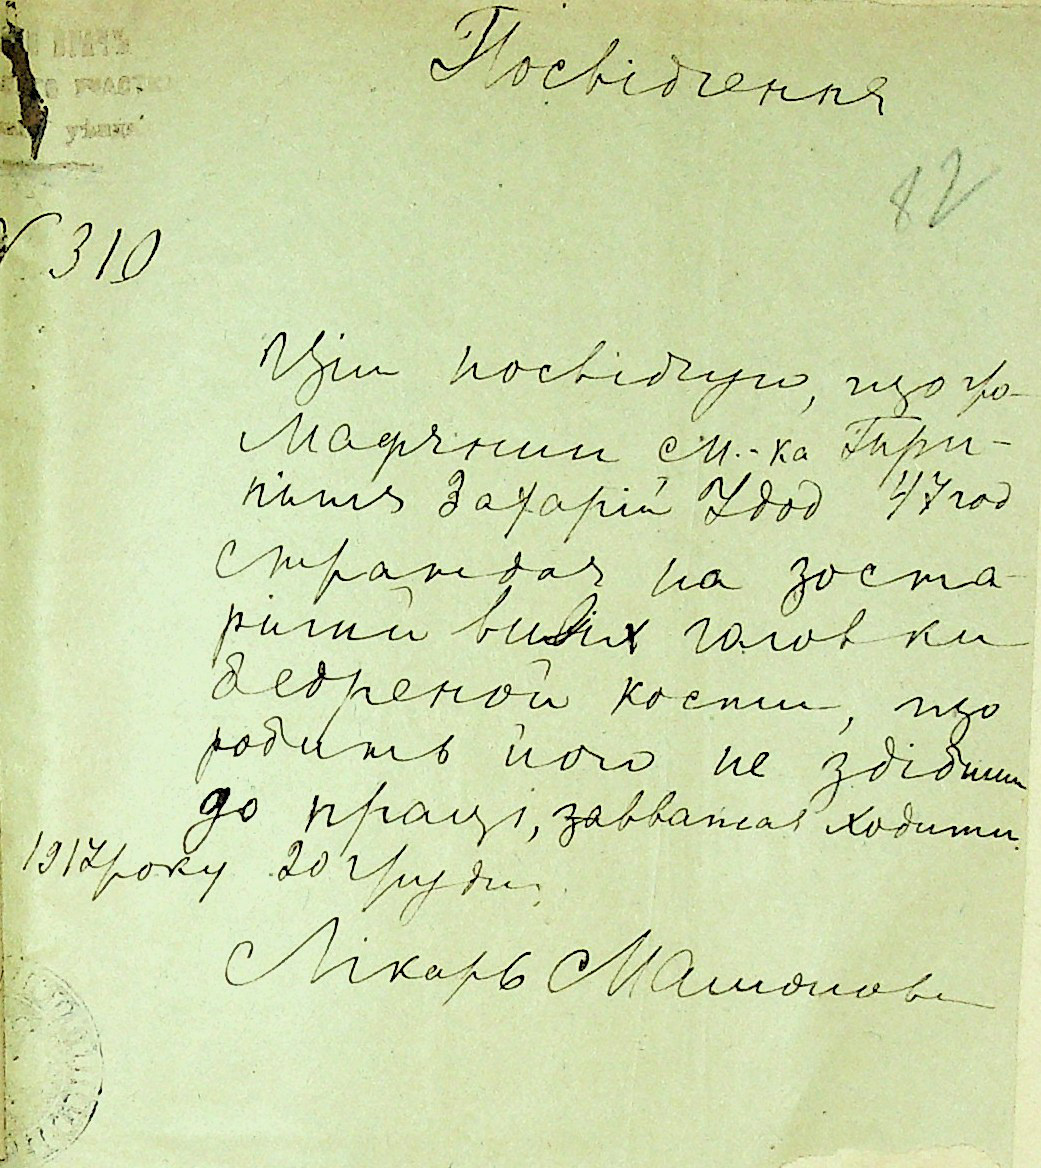 Посвідчення
82
№ 310
Цім посвідчую, що гро-
мадянин м.-ка Гири-
Захарій Удод 47 год
страждая на зоста-
рілий вивих головки
бедреной кости, що
робить його не здібним
до праці, завважая ходити.
1917 року 20 грудн.
Лікарь